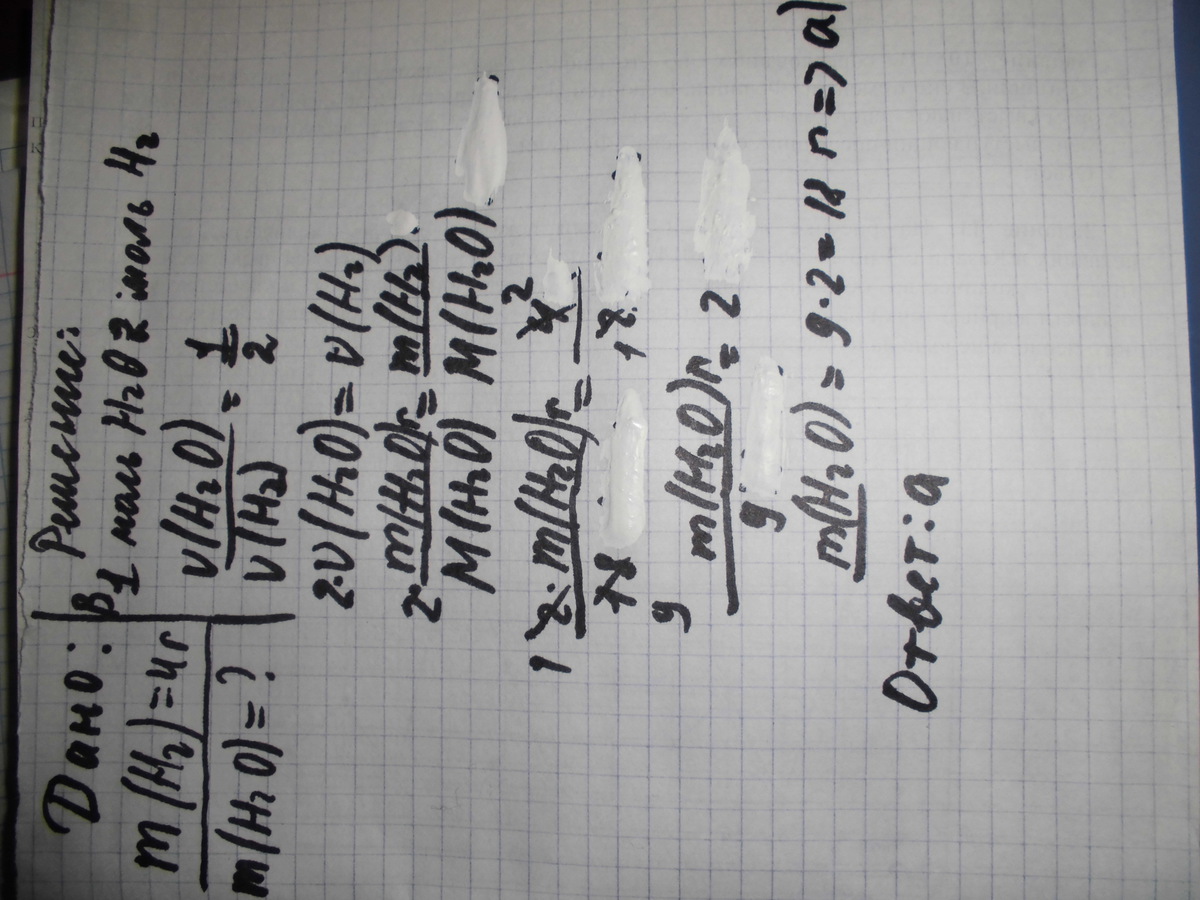 Дано:
m(H₂)=4г
m(H₂O)=?
Решение:
В 1 моль H₂O 2 моль H₂
ν(H₂O)/ν(H₂) = 1/2
2·ν(H₂O)=ν(H₂)
2·m(H₂O)г/M(H₂O) = m(H₂)/M(H₂O)
1 2·m(H₂O)г/18 9 = 4 2/2 1
m(H₂O)г/9 = 2
m(H₂O)=9·2=18 г=>а)
Ответ: а